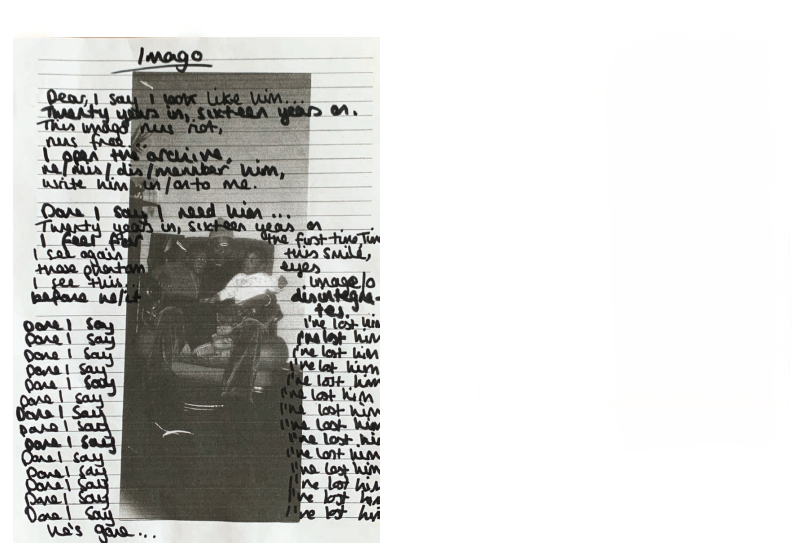 Imago
Dare, I say I look like him...
Twenty years in, sixteen years on.
This imago runs riot,
runs free...
I open the archive,
re/mis/dis/member him,
write him in/onto me.
Dare I say I need him...
Twenty years in, sixteen years on
I fear for the first time Tim
I see again this smile,
those phantom eyes
I see this... image/o
before he/it disintegra-
tes.
Dare I say I've lost him
Dare I say I've lost him
Dare I say I've lost him
Dare I say I've lost him
Dare I say I've lost him
Dare I say I've lost him
Dare I say I've lost him
Dare I say I've lost him
Dare I say I've lost him
Dare I say I've lost him
Dare I say I've lost him
Dare I say I've lost him
Dare I say I've lost him
Dare I say I've lost him
he's gone...